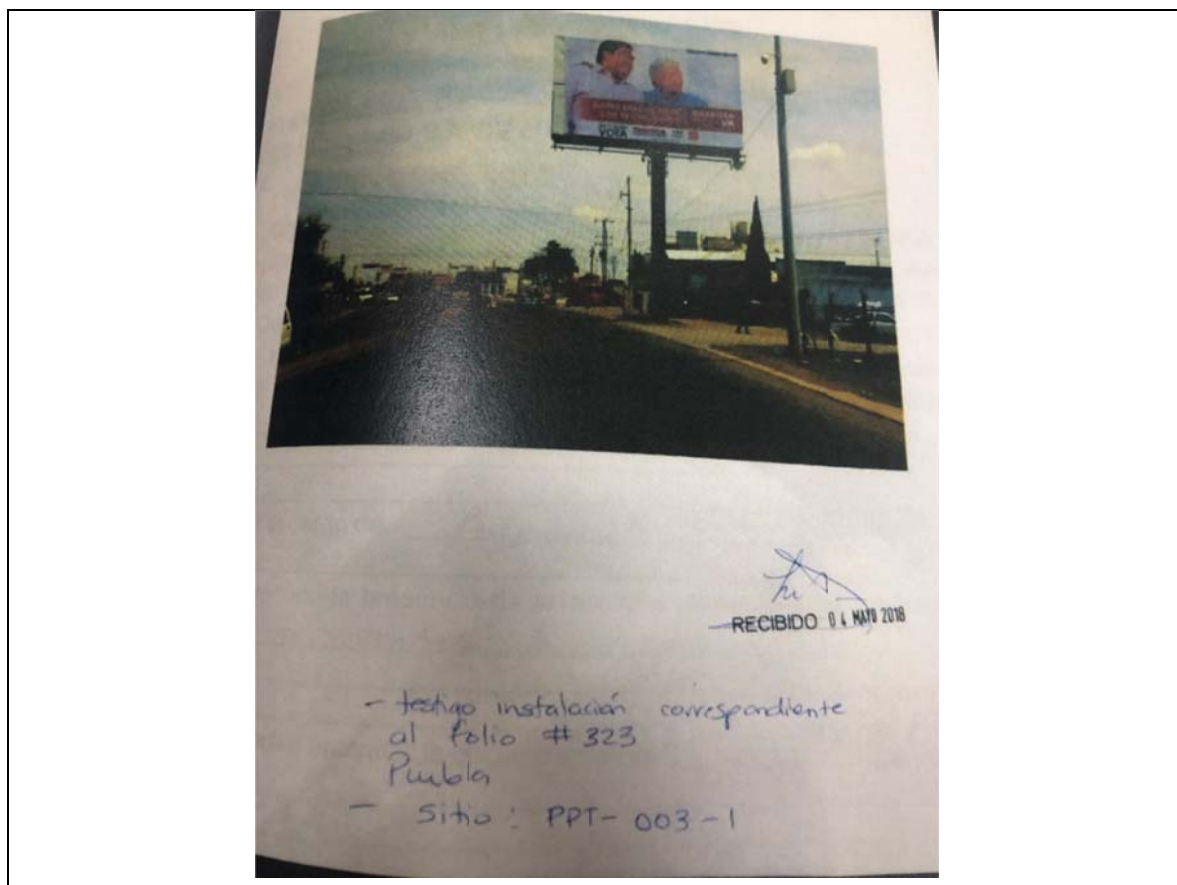 VOTA
RECIBIDO 04 MAYO 2018
- testigo instalación correspondiente
al folio # 323
Puebla
- Sitio: PPT-003-1